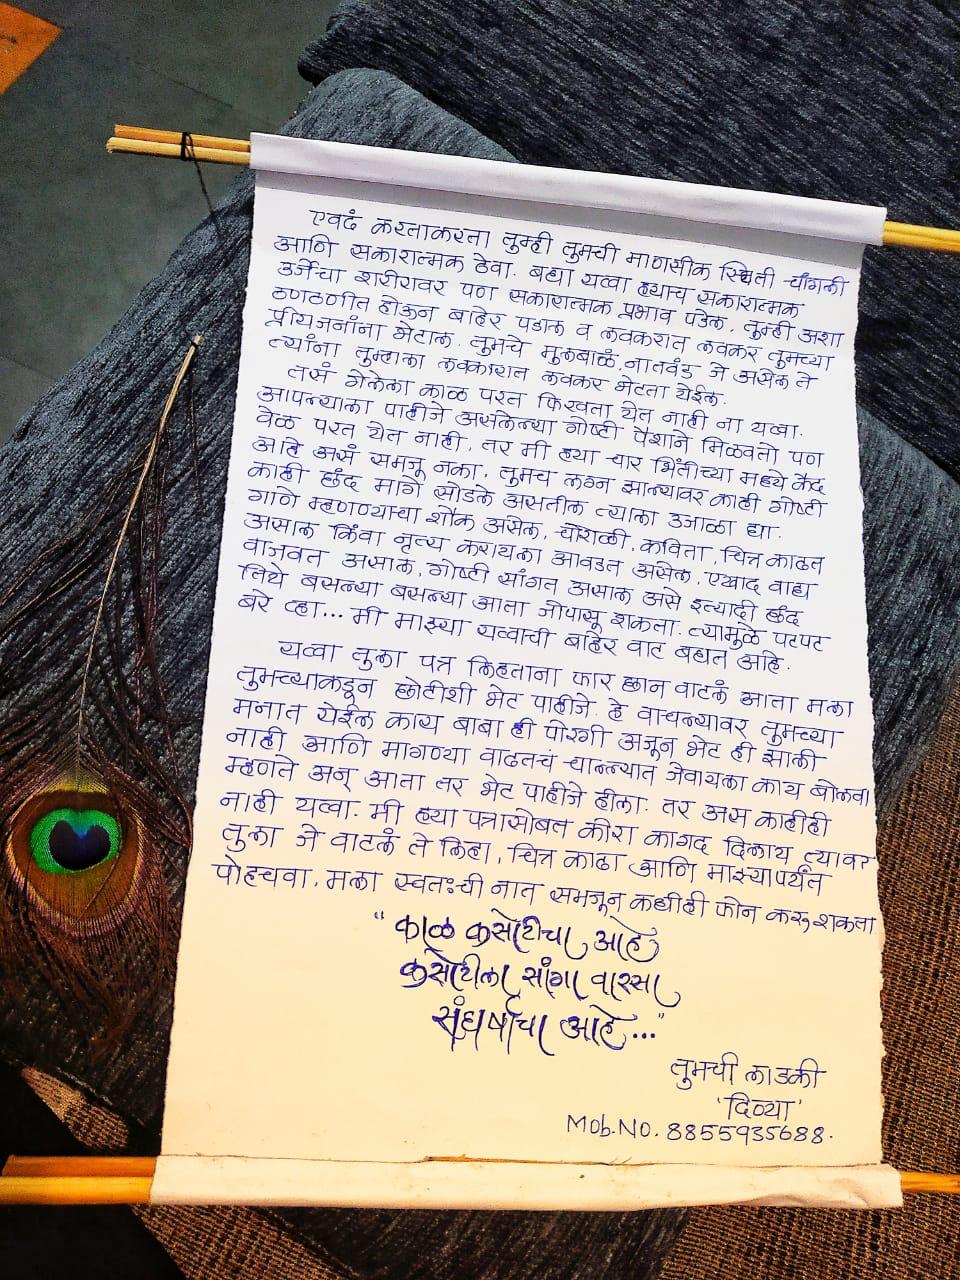 एवढं करताकरता तुम्ही तुमची मानसीक स्थिती चांगली
आणि सकारात्मक ठेवा. बघा यव्वा ह्याच सकारात्मक
उर्जेचा शरीरावर पण सकारात्मक प्रभाव पडेल. तुम्ही अशा
ठणठणीत होऊन बाहेर पडाल व लवकरात लवकर तुमच्या
प्रीयजनांना भेटाल. तुमचे मुलबाळं, नातवंड जे असेल ते
त्यांना तुम्हाला लवकारात लवकर भेटता येईल.
तसं गेलेला काळ परत फिरवता येत नाही ना यव्वा.
आपल्याला पाहीजे असलेल्या गोष्टी पैशाने मिळवतो पण
वेळ परत येत नाही. तर मी ह्या चार भिंतीच्या मध्ये कैद
आहे असं समजू नका. तुमच लग्न झाल्यावर काही गोष्टी
काही छंद मागे सोडले असतील त्याला उजाळा द्या.
गाणे म्हणण्याचा शौक असेल, चारोळी, कविता, चित्र काढत
असाल किंवा नृत्य करायला आवडत असेल, एखाद वाद्य
वाजवत असाल, गोष्टी सांगत असाल असे इत्यादी छंद
तिथे बसल्या बसल्या आता जोपासू शकता. त्यामुळे पटपट
बरे व्हा... मी माझ्या यव्वाची बाहेर वाट बघत आहे.
यव्वा तुला पत्र लिहताना फार छान वाटलं आता मला
तुमच्याकडून छोटीशी भेट पाहीजे. हे वाचल्यावर तुमच्या
मनात येईल काय बाबा ही पोरगी अजून भेट ही झाली
नाही आणि मागण्या वाढतचं चाल्ल्यात जेवायला काय बोलवा
म्हणते अन् आता तर भेट पाहीजे हीला. तर अस काहीही
नाही यव्वा. मी ह्या पत्रासोबत कोरा कागद दिलाय त्यावर
तुला जे वाटलं ते लिहा, चित्र काढा आणि माझ्यापर्यंत
पोहचवा. मला स्वतःची नात समजून कधीही फोन करू शकता
"काळ कसोटीचा आहे
कसोटीला सांगा वारसा
संघर्षाचा आहे..."
तुमची लाडकी
'दिव्या'
Mob.No. 8855935688.